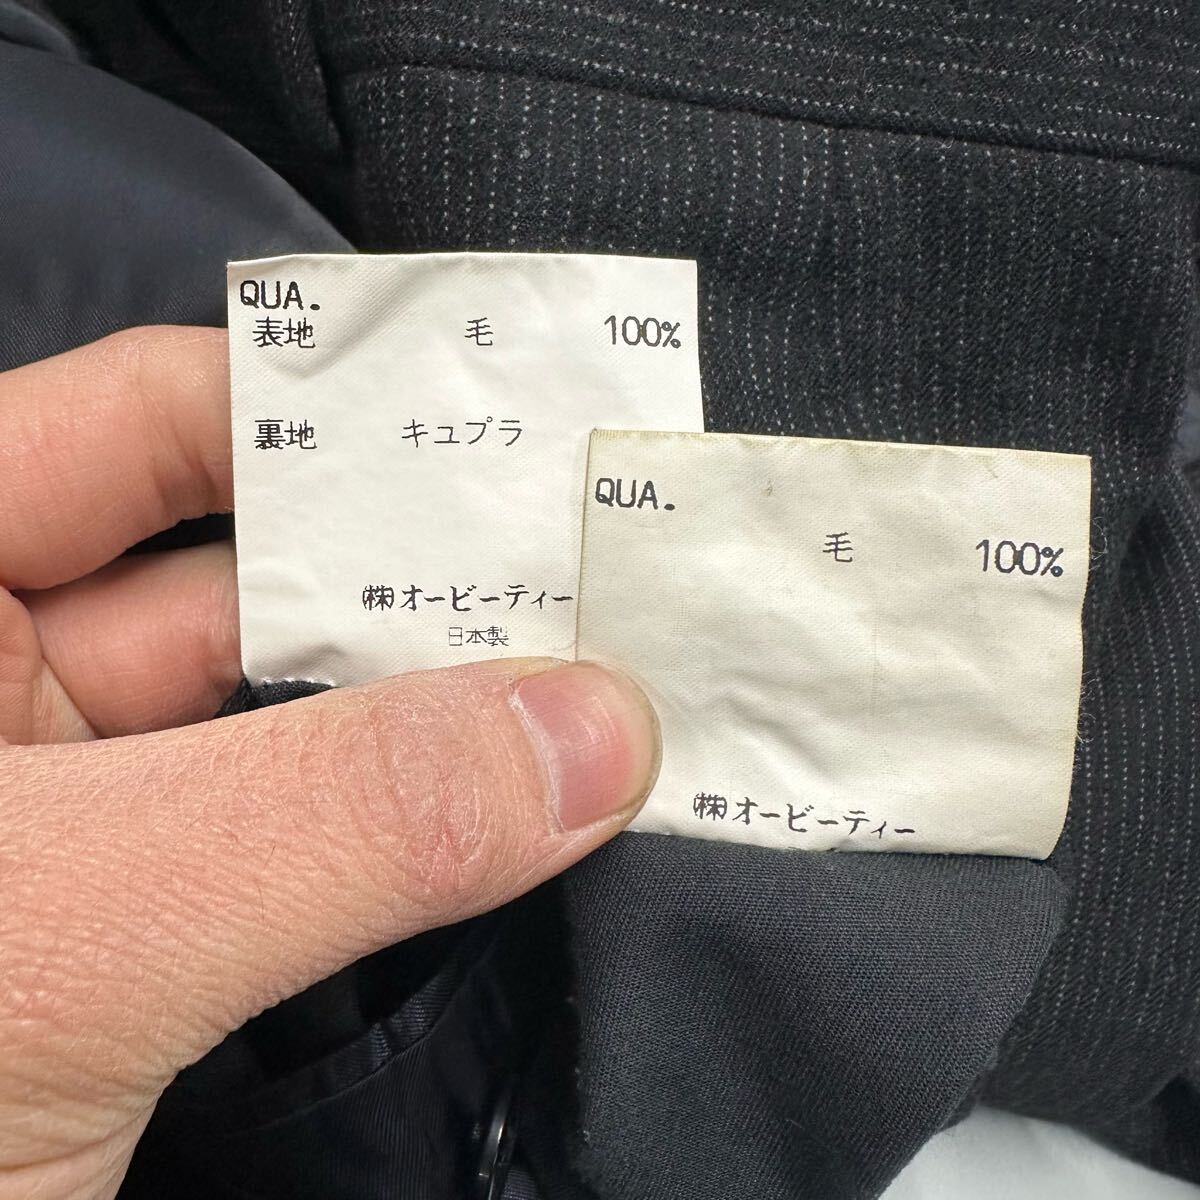 QUA.
表地 毛 100%
裏地 キュプラ
㈱オービーティー
日本製
QUA.
毛 100%
㈱オービーティー